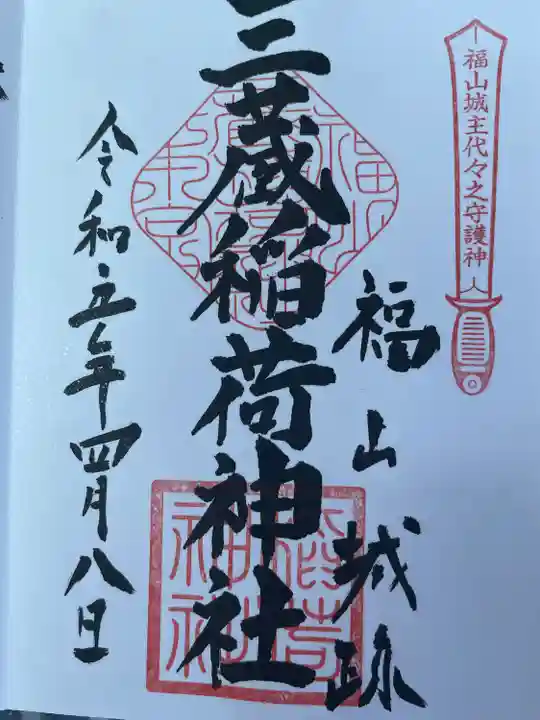 福山城主代々之守護神
福山城跡
三蔵稲荷神社
令和五年四月八日